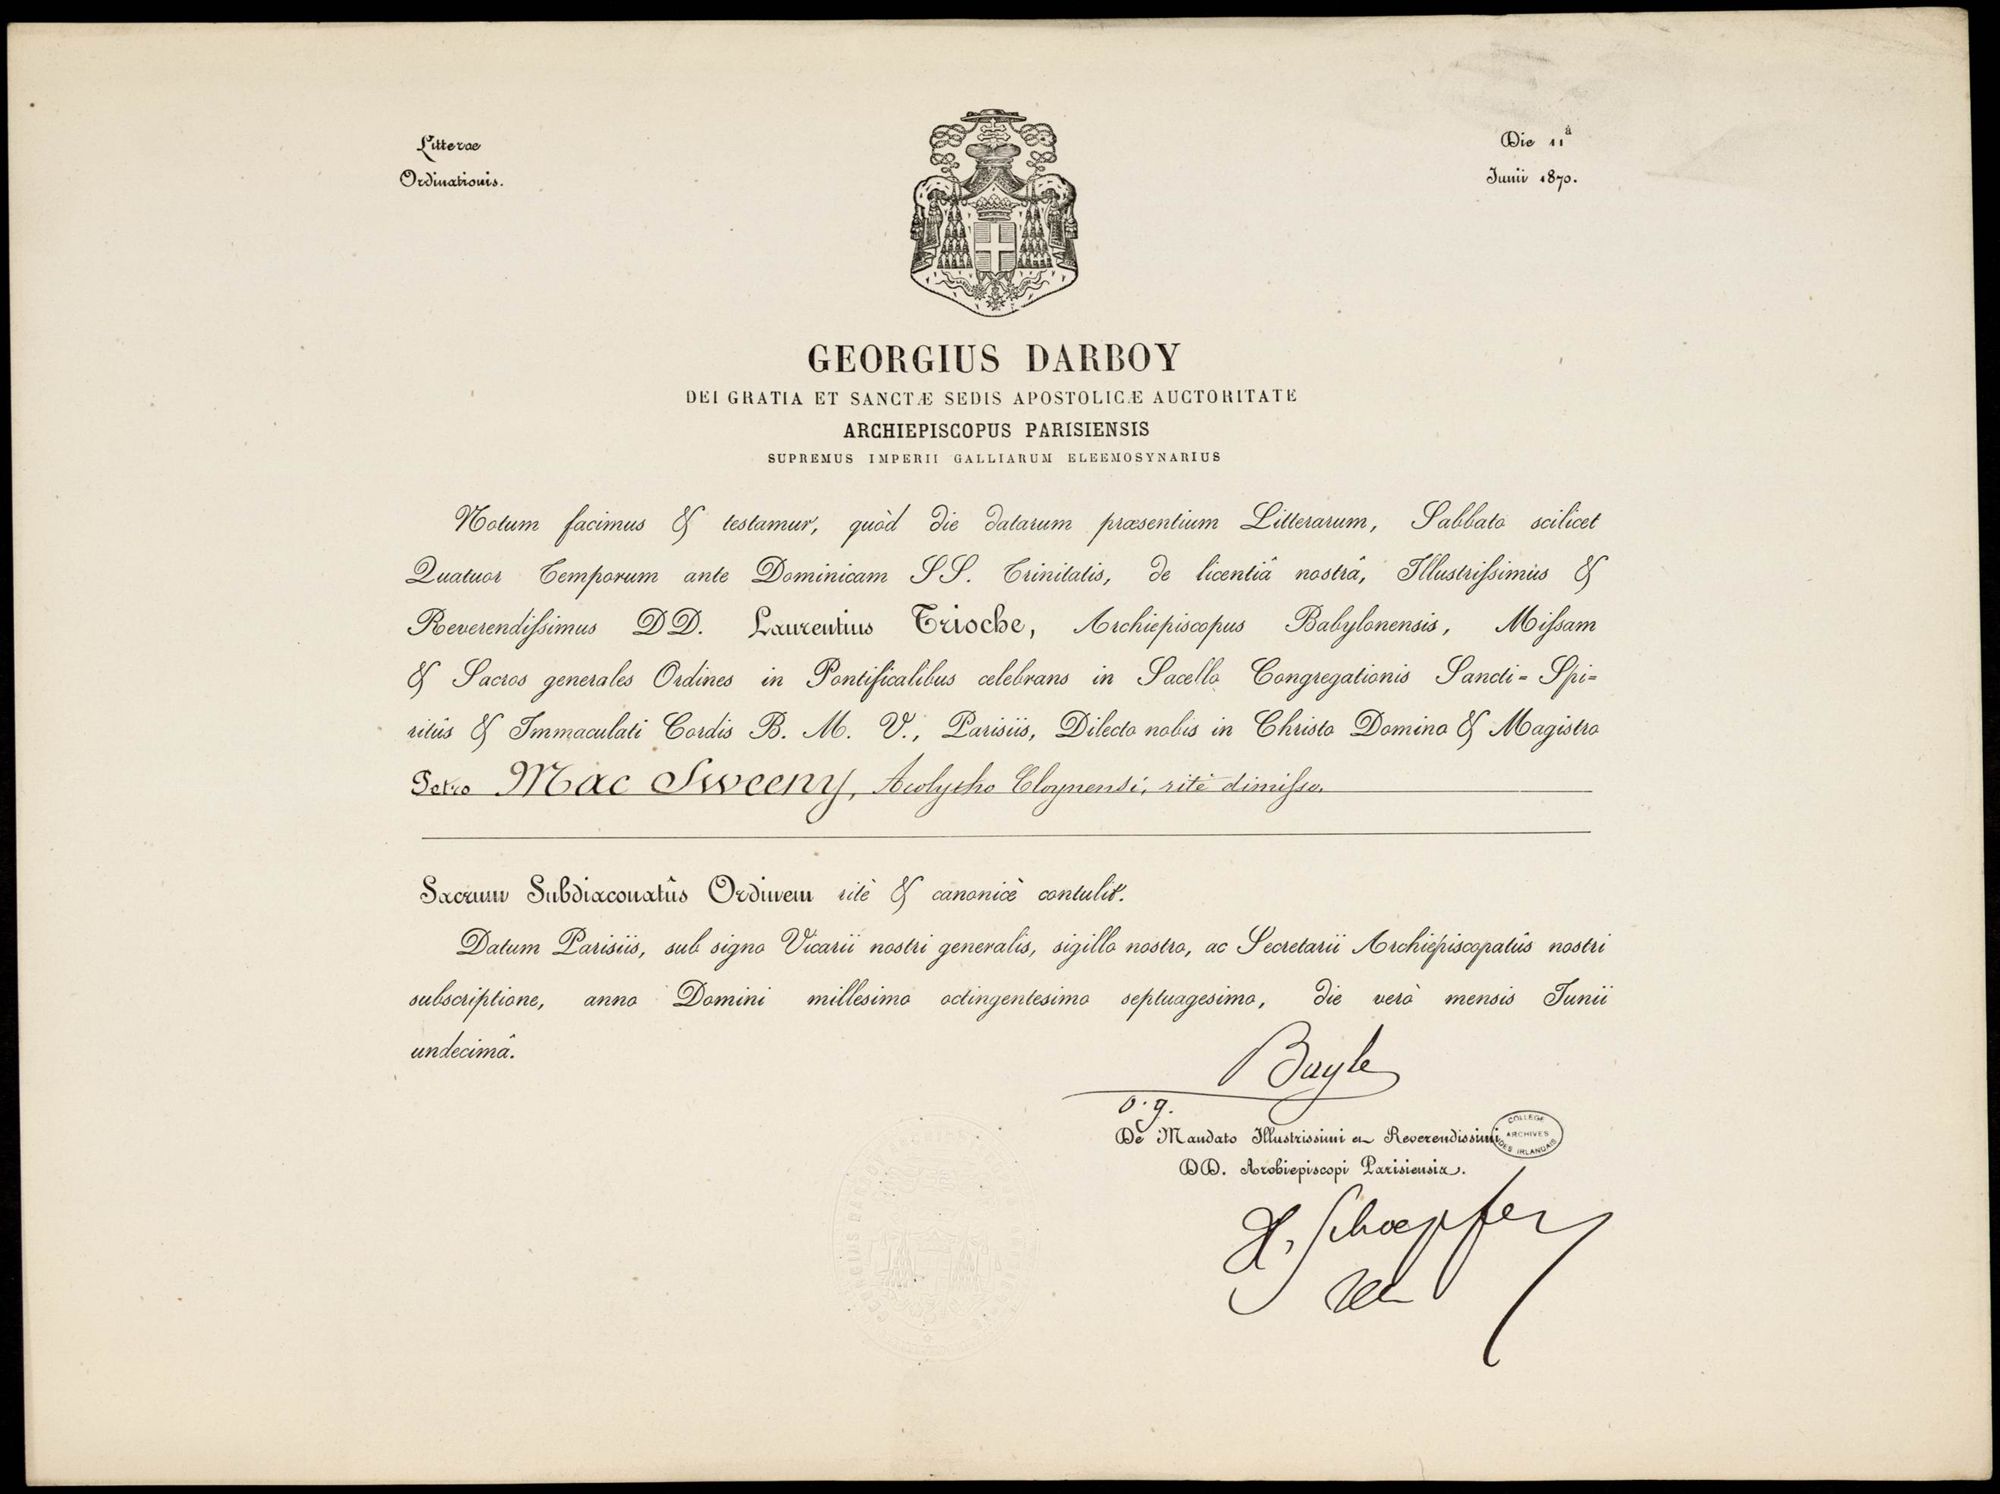 Litterae
Ordinationis.
Die 11â
Junii 1870.
GEORGIUS DARBOY
DEI GRATIA ET SANCTÆ SEDIS APOSTOLICÆ AUCTORITATE
ARCHIEPISCOPUS PARISIENSIS
SUPREMUS IMPERII GALLIARUM ELEEMOSYNARIUS
Notum facimus & testamur, quòd die datarum præsentium Litterarum, Sabbato scilicet
Quatuor Temporum ante Dominicam SS. Trinitatis, de licentiâ nostrâ, Illustrissimus &
Reverendissimus DD. Laurentius Trioche, Archiepiscopus Babylonensis, Missam
& Sacros generales Ordines in Pontificalibus celebrans in Sacello Congregationis Sancti-Spi-
ritûs & Immaculati Cordis B. M. V., Parisiis, Dilecto nobis in Christo Domino & Magistro
Petro Mac Sweeny, Acolytho Cloynensi, ritè dimisso.
Sacrum Subdiaconatûs Ordinem ritè & canonicè contulit.
Datum Parisiis, sub signo Vicarii nostri generalis, sigillo nostro, ac Secretarii Archiepiscopatûs nostri
subscriptione, anno Domini millesimo octingentesimo septuagesimo, die verò mensis Junii
undecimâ.
Bayle
v. g.
De Mandato Illustrissimi et Reverendissimi
DD. Archiepiscopi Parisiensis.
COLLEGE
ARCHIVES
DES IRLANDAIS
Schoepfer